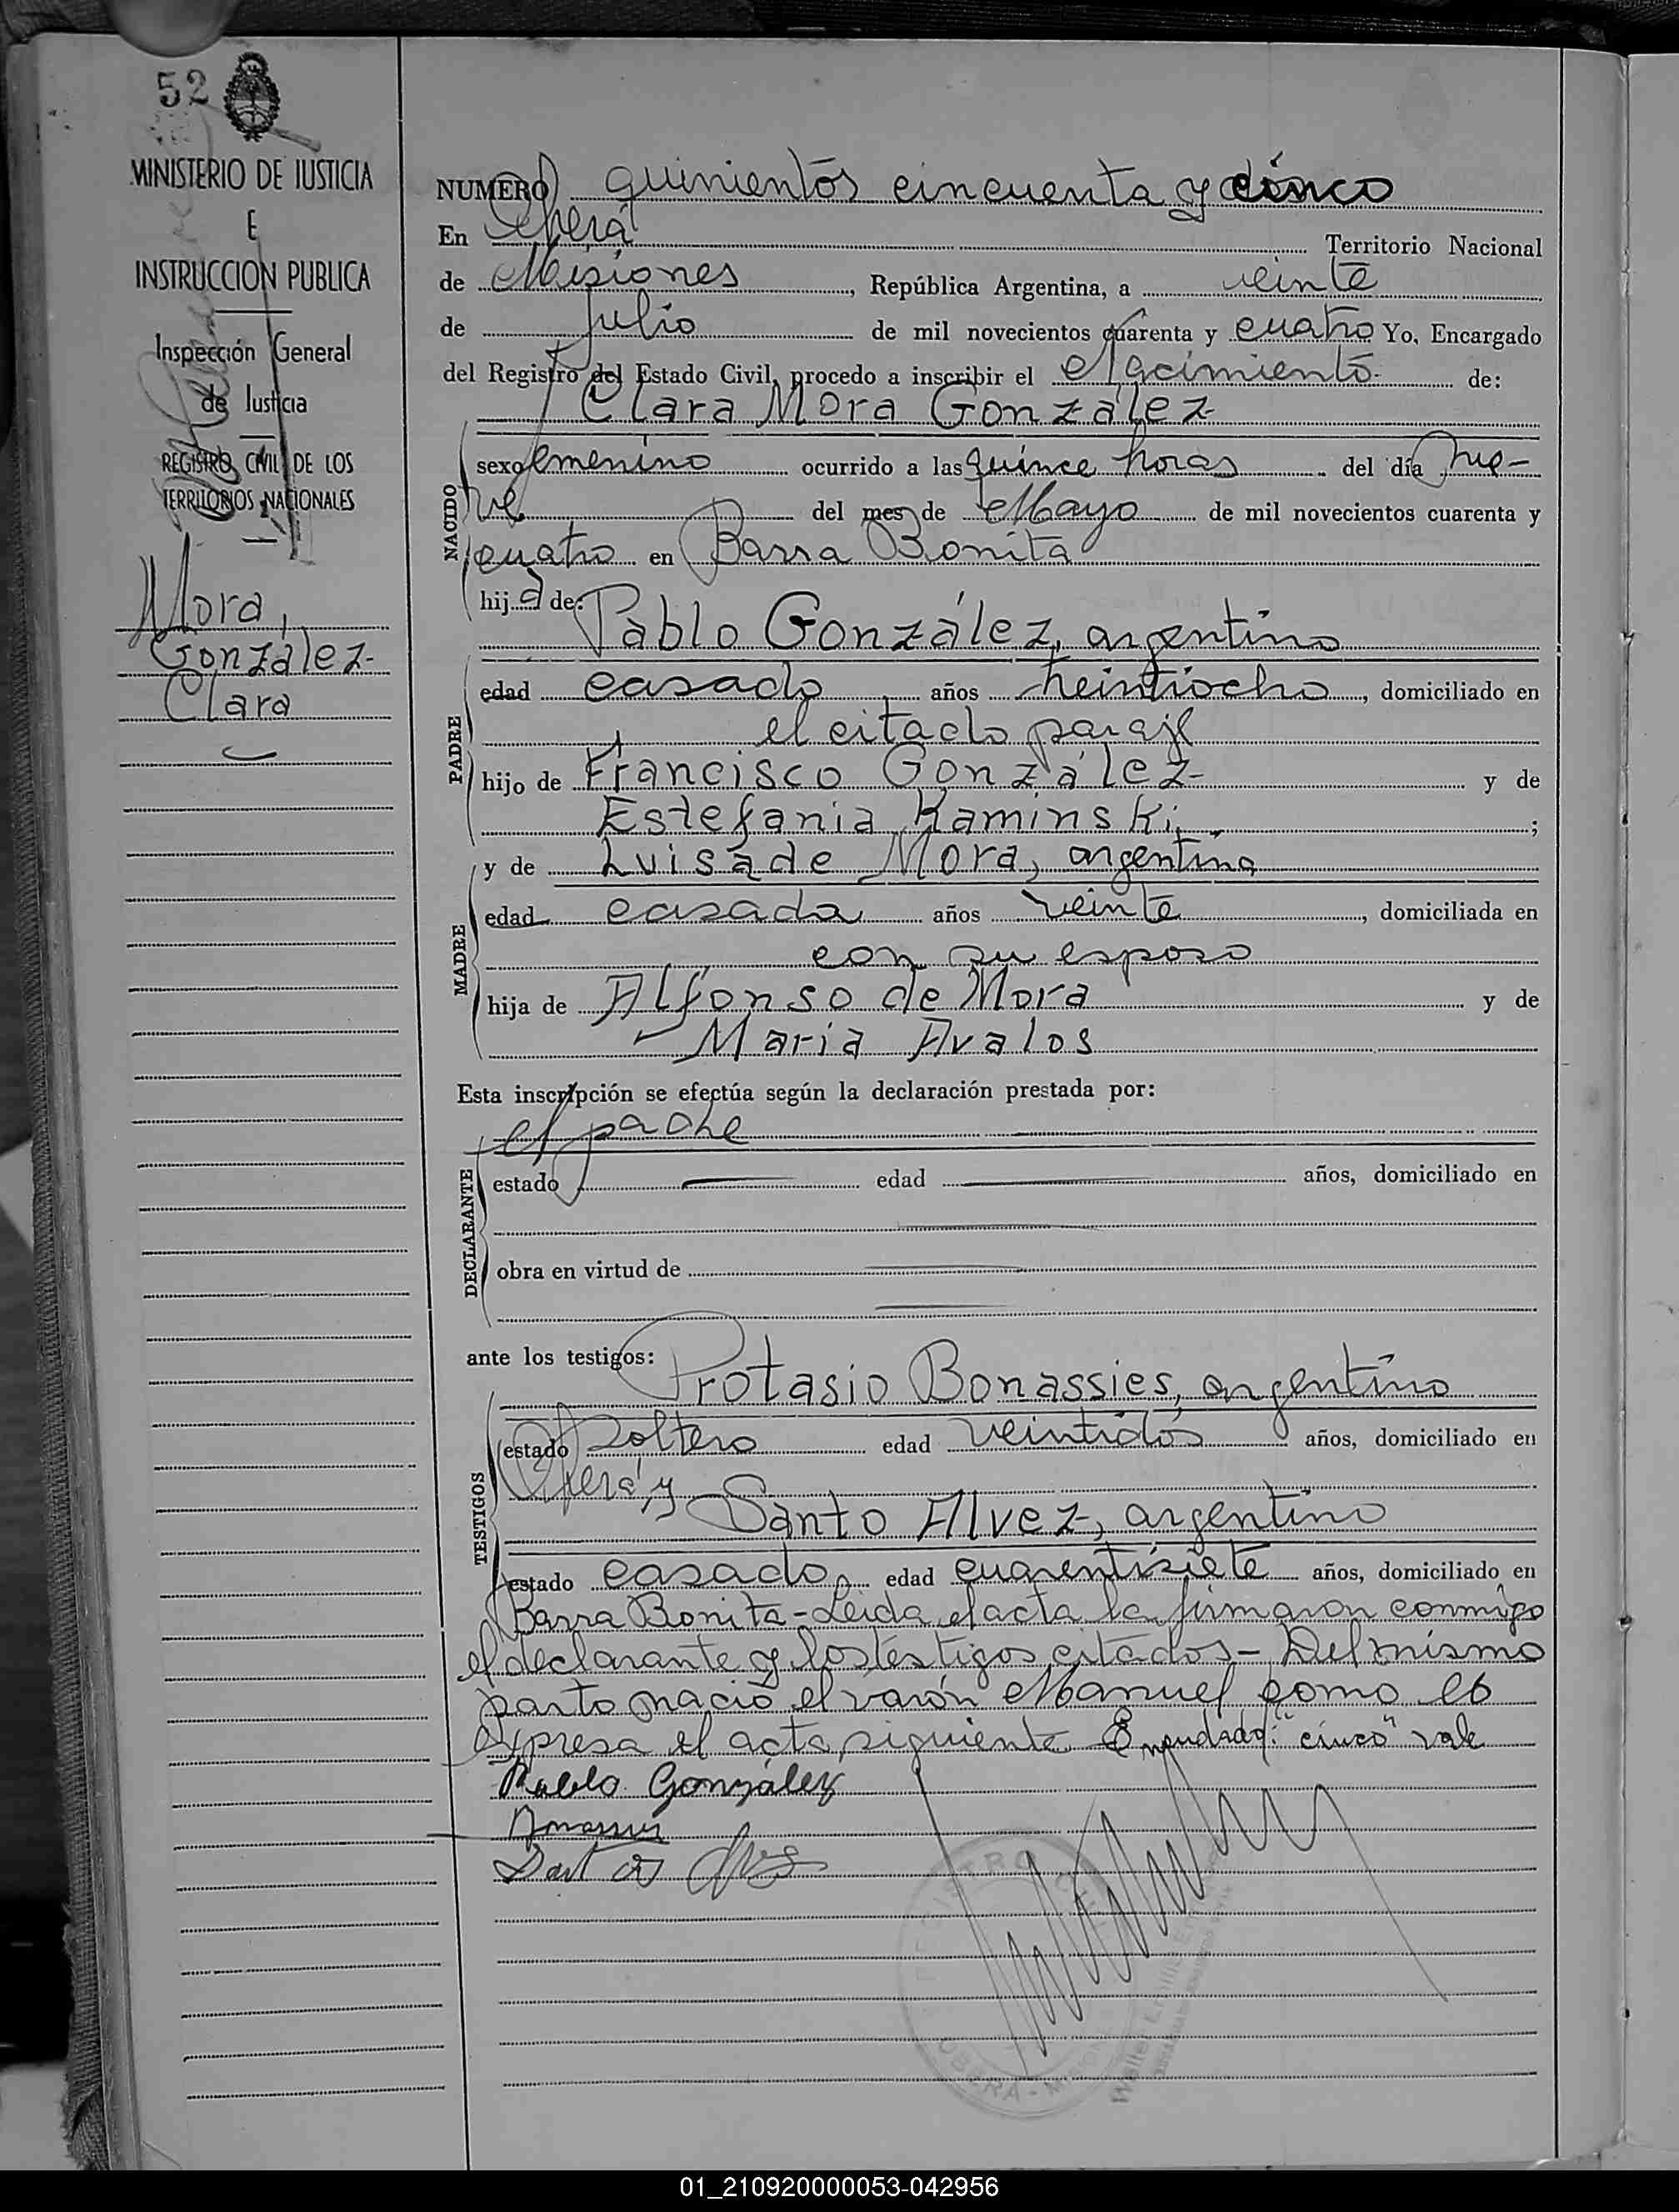 52
MINISTERIO DE JUSTICIA
E
INSTRUCCION PUBLICA
Inspección General
de Justicia
REGISTRO CIVIL DE LOS
TERRITORIOS NACIONALES
Mora,
González-
Clara
NUMERO quinientos cincuenta y cinco
En Oberá Territorio Nacional
de Misiones, República Argentina, a veinte
de Julio de mil novecientos cuarenta y cuatro Yo, Encargado
del Registro del Estado Civil, procedo a inscribir el Nacimiento de:
Clara Mora González
NACIDO
sexo femenino ocurrido a las quince horas del día nue-
ve del mes de Mayo de mil novecientos cuarenta y
cuatro en Barra Bonita
hija de:
Pablo González, argentino
PADRE
edad casado años veintiocho, domiciliado en
el citado paraje
hijo de Francisco González y de
Estefania Kaminski;
MADRE
y de Luisa de Mora, argentina
edad casada años veinte, domiciliada en
con su esposo
hija de Alfonso de Mora y de
Maria Avalos
Esta inscripción se efectúa según la declaración prestada por:
el padre
DECLARANTE
estado edad años, domiciliado en
obra en virtud de
ante los testigos:
Protasio Bonassies, argentino
TESTIGOS
estado soltero edad veintidós años, domiciliado en
Oberá, y
Santo Alvez, argentino
estado casado edad cuarentisiete años, domiciliado en
Barra Bonita-Leida el acta la firmaron conmigo
el declarante y los testigos citados- Del mismo
parto nació el varón Manuel como lo
expresa el acta siguiente Enmendado: "cinco" vale
Pablo González
REGISTRO
OBERA - MISIONES
01_210920000053-042956